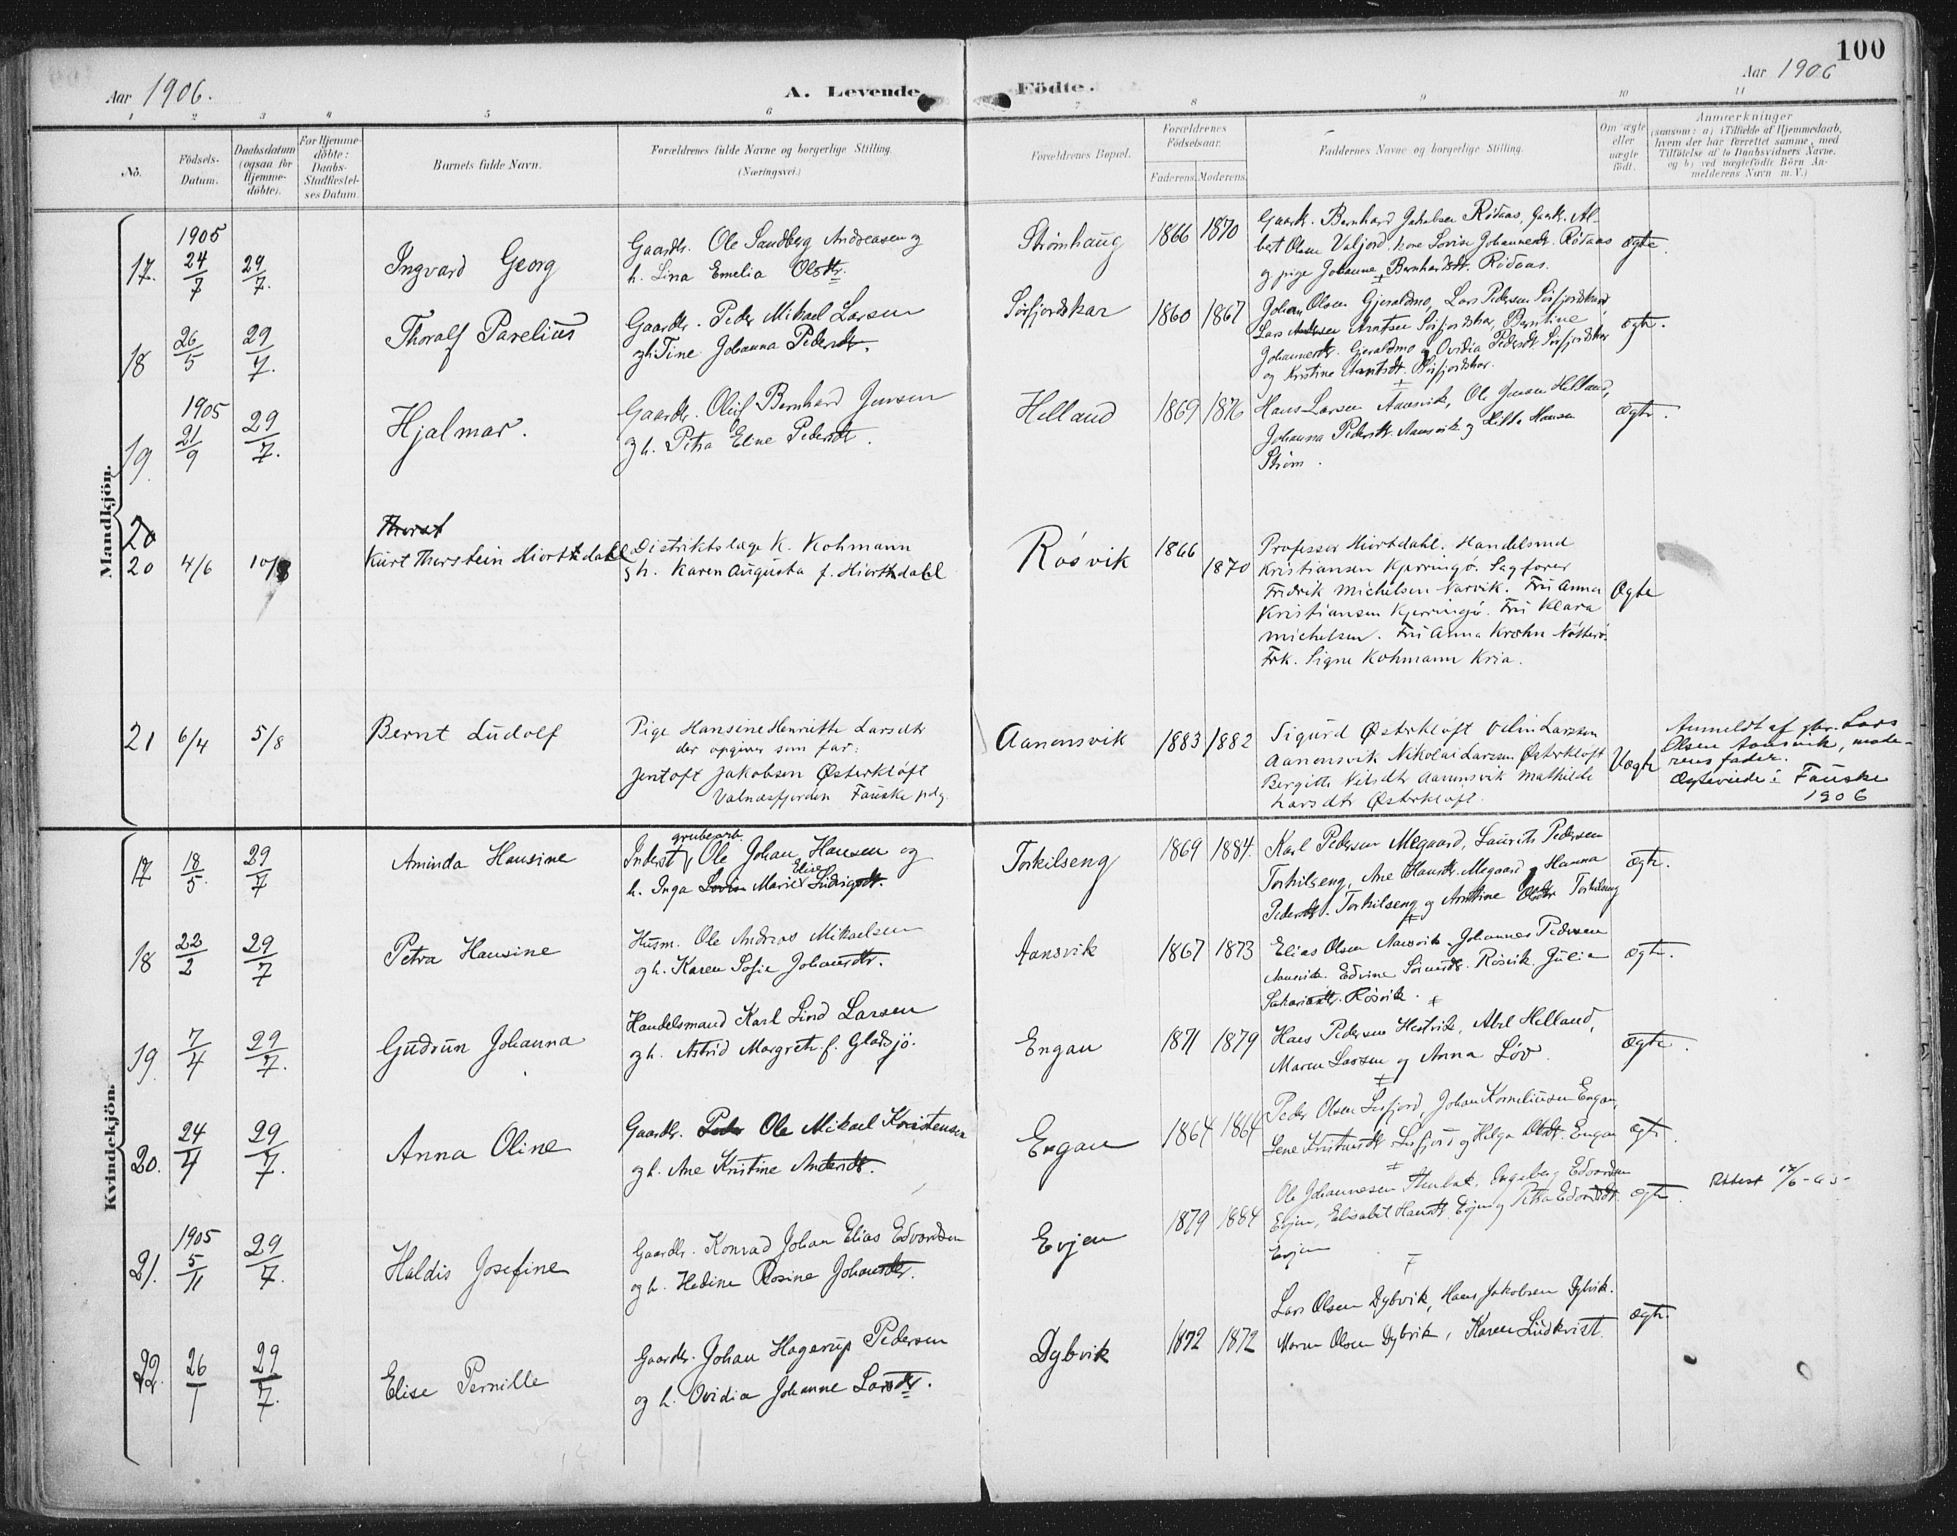 100
Aar 1906.
A. Levende
Födte.
Aar 1906
1 2 3 4 5 6 7 8 9 10 11
No.
Födsels-
Datum.
Daabsdatum
(ogsaa for
Hjemme-
döbte).
For Hjemme-
döbte:
Daabs-
Stadfæstel-
ses Datum.
Barnets fulde Navn.
Forældrenes fulde Navne og borgerlige Stilling.
(Næringsvei.)
Forældrenes Bopæl.
Forældrenes
Födselsaar.
Faderens. Moderens.
Faddernes Navne og borgerlige Stilling.
Om ægte
eller
uægte
födt.
Anmærkninger
(saasom: a) i Tilfælde af Hjemmedaab,
hvem der har forrettet samme, med
Tilföielse af to Daabsvidners Navne.
og b) ved uægtefödte Börn An-
melderens Navn m. V.)
Mandkjön.
17. 1905 24/7 29/7. Ingvard Georg
Gaardb. Ole Sandberg Andreasen og
h. Lina Emelia Olsdtr.
Strømhaug 1866 1870
Gaardb. Bernhard Jakobsen Rødaas, Gaardb. Al-
bert Olsen Valjord, kone Lovise Johannesdt. Rødaas
og pige Johanne Bernhardsdt. Rødaas.
ægte.
18 26/5 29/7. Thoralf Parelius
Gaardb. Peder Mikael Larsen
og h. Tine Johanna Pedersdtr.
Sørfjordskar 1860 1867
Johan Olsen Gjeraldmo, Lars Pedersen Sørfjordskar,
Lars Arntsen Sørfjordskar, Berntine
Johannesdtr. Gjeraldmo og Ovidia Pedersdt. Sørfjordskar
og Kristine Arntsdt. Sørfjordskar.
ægte.
19. 1905 21/9 29/7. Hjalmar.
Gaardb. Oluf Bernhard Jensen
og h. Petra Eline Pedersdt.
Helland 1869 1876
Hans Larsen Aansvik, Ole Jensen Helland,
Johanna Pedersdtr. Aansvik og Hansen
Strøm.
ægte.
20
20 4/6 10/8 Kurt Thorstein Hiorthdahl
Distriktslæge K. Kohmann
og h. Karen Augusta f. Hiorthdahl
Røsvik 1866 1870
Professor Hiortdahl. Handelsmd
Kristiansen Kjerringö. Sagfører
Fridrik Michelsen Narvik. Fru Anna
Kristiansen Kjerringö. Fru Klara
Michelsen. Fru Anna Krohn Nötterö.
Frk. Signe Kohmann Kria.
Ægte
21 6/4 5/8 Bernt Ludolf
Pige Hansine Henriette Larsdtr
der opgiver som far:
Jentoft Jakobsen Østerkløft
Valnesfjorden Fauske pdg.
Aanonsvik 1883 1882
Sigurd Østerkløft Odin Larssen
Aanonsvik Nikolai Larssen Østerkløft
Bergitte Nilsdtr Aanonsvik Mathilde
Larsdtr Østerkløft.
Uægte
Anmeldt af gbr. Lars
Olsen Aansvik, mode-
rens fader.
Ægteviede i Fauske
1906
Kvindekjön.
17 18/5. 29/7 Aminda Hansine
Inderst grubearb. Ole Johan Hansen og
h. Inga Marie Elise Ludvigsdt.
Torkilseng 1869 1884.
Karl Pedersen Megaard, Laurits Pedersen
Torkilseng, Ane Hansdtr. Megaard og Hanna
Pedersdt. Torkilseng og Arntine Olsdtr Torkilseng
ægte.
18 22/2 29/7 Petra Hansine
Husm. Ole Andreas Mikaelsen
og h. Karen Sofie Johansdtr.
Aansvik 1867 1873
Elias Olsen Aansvik. Johannes Pedersen
Aansvik. Edvine Sörensdt. Røsvik. Julie
Sakariasdtr. Røsvik.
ægte.
19. 7/4 29/7. Gudrun Johanna
Handelsmand Karl Lind Larsen
og h. Astrid Margrete f. Gladsjö.
Engan 1871 1879
Hans Pedersen Hestvik, Abel Helland,
Maren Larsen og Anna Löv.
ægte.
20. 24/4 29/7. Anna Oline
Gaardb. Ole Mikael Kristensen
og h. Ane Kristine Andersdt.
Engan 1864 1864
Peder Olsen Leifjord, Johan Korneliusen Engan,
Lene Kristensdt. Leifjord og Helga Olsdt. Engan
ægte.
21. 1905 5/11 29/7. Haldis Josefine
Gaardb. Konrad Johan Elias Edvardsen
og h. Hedine Rosine Johansdtr.
Evjen 1879 1884
Ole Johannesen, Ingeberg Edvardsen
Evjen, Elisabet Hansdt. Evjen og Petra Edvardsdt.
Evjen
ægte.
Attest 17/6-05-
22. 26/1 29/7. Elise Pernille
Gaardb. Johan Hagerup Pedersen
og h. Ovidia Johanne Larsdtr.
Dybvik 1872 1872
Lars Olsen Dybvik, Hans Jakobsen Dybvik.
Maren Olsen Dybvik, Karen Lundkvist.
ægte.